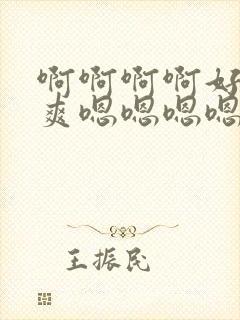 啊啊啊啊好
爽嗯嗯嗯嗯
王振民